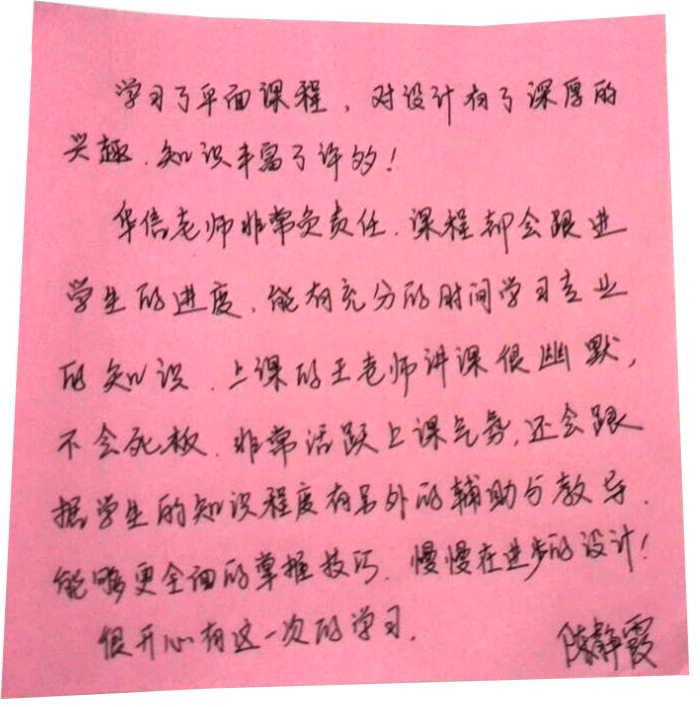 学习了平面课程，对设计有了深厚的
兴趣.知识丰富了许多！
华信老师非常负责任.课程都会跟进
学生的进度.能有充分的时间学习专业
的知识.上课的王老师讲课很幽默，
不会死板.非常活跃上课气氛,还会跟
据学生的知识程度有另外的辅助与教导.
能够更全面的掌握技巧.慢慢在进步的设计！
很开心有这一次的学习.
陈静霞